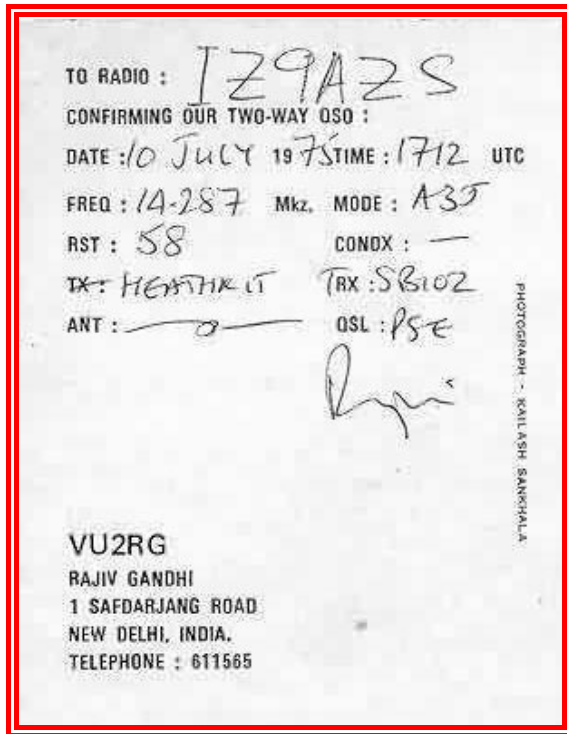 TO RADIO : IZ9AZS
CONFIRMING OUR TWO-WAY QSO :
DATE : 10 JULY 1975 TIME : 1712 UTC
FREQ : 14-287 Mkz. MODE : A3J
RST : 58 CONDX : —
TX : HEATHKIT TRX : SB102
ANT : QSL : PSE
Rajiv
PHOTOGRAPH - KAILASH SANKHALA
VU2RG
RAJIV GANDHI
1 SAFDARJANG ROAD
NEW DELHI, INDIA.
TELEPHONE : 611565